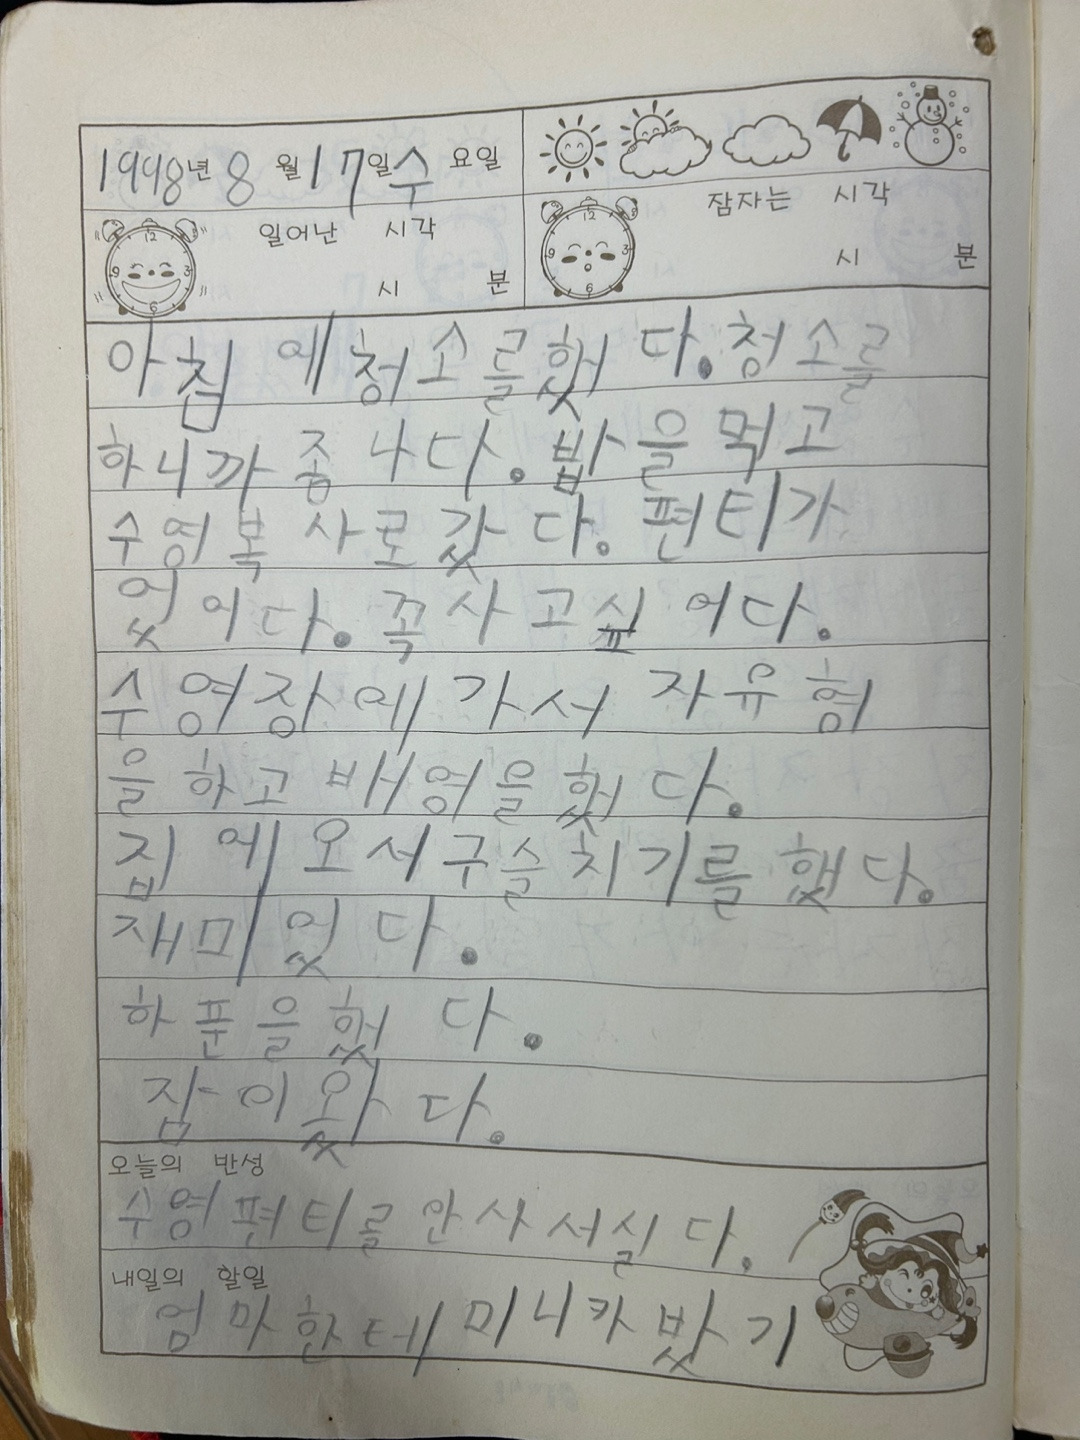 1998년 8월 17일 수요일
일어난 시각
시 분
잠자는 시각
시 분
아침에 청소를했다. 청소를
하니까 좀 나다. 밥을 먹고
수영복 사로 갔다. 펀티가
있어다. 꼭 사고싶어다.
수영장에 가서 자유형
을 하고 배영을 했다.
집에 오서 구슬치기를 했다.
재미 있다.
하푼을 했다.
잠이 왔다.
오늘의 반성
수영 펀티를 안사서실다.
내일의 할일
엄마한테 미니카 밧기